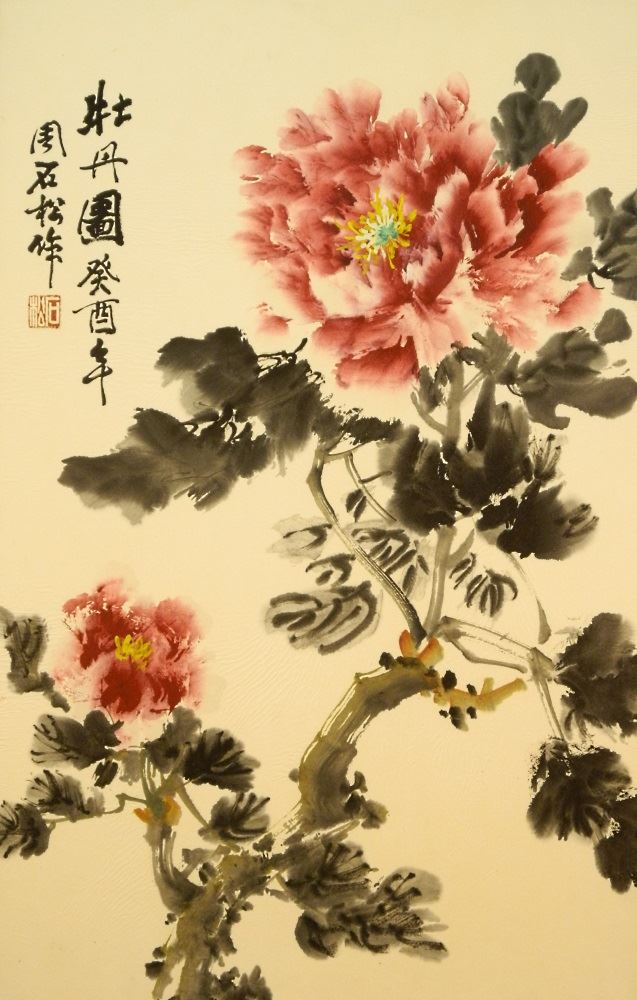 牡丹圖癸酉年
周石松作
石松